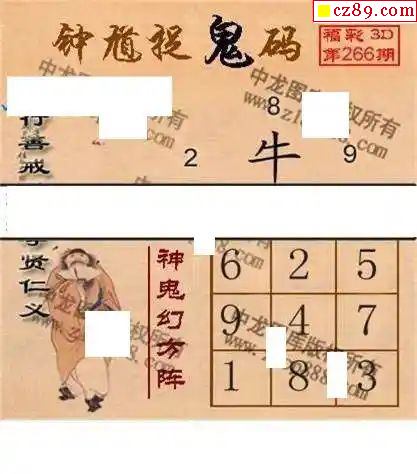 cz89.com
钟馗捉鬼码
福彩3D
第266期
8
2 牛 9
行善戒
贤仁义
神鬼幻方阵
6 2 5
9 4 7
1 8 3
中龙图库版权所有